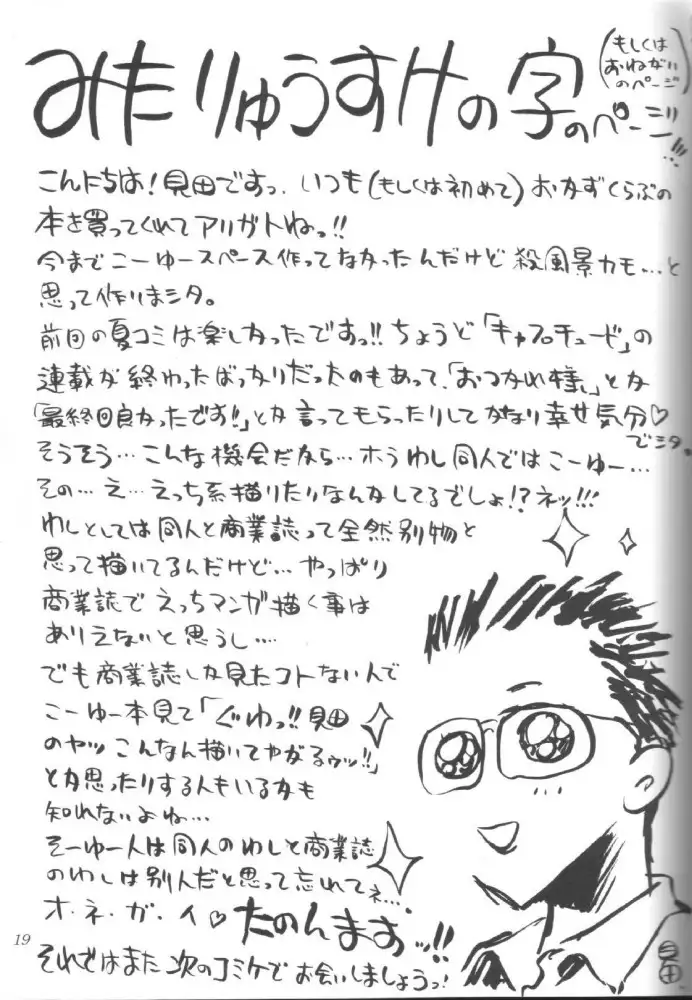 みたりゅうすけの字のページ!!!
(もしくは
おねがい
のページ)
こんにちは!見田ですっ.いつも(もしくは初めて)おかずくらぶの
本を買ってくれてアリガトねっ!!
今までこーゆースペース作ってなかったんだけど殺風景カモ…と
思って作りまシタ。
前回の夏コミは楽しかったですっ!!ちょうど「キャプチュード」の
連載が終わったばっかりだったのもあって、「おつかれ様」とか
「最終回良かったです!」とか言ってもらったりしてかなり幸せ気分♡
でシタ。
そうそう…こんな機会だから…ホラわし同人ではこーゆー…
その…え…えっち系描いたりなんかしてるでしょ!?ネッ!!!
わしとしては同人と商業誌って全然別物と
思って描いてるんだけど…やっぱり
商業誌でえっちマンガ描く事は
ありえないと思うし…
でも商業誌しか見たコトない人で
こーゆー本見て「ぐわっ!!見田
のヤツこんなん描いてやがるゥッ!!」
とか思ったりする人もいるかも
知れないよね…
そーゆー人は同人のわしと商業誌
のわしは別人だと思って忘れてネ…
オ・ネ・ガ・イ♡たのんますっ!!
それではまた次のコミケでお会いしましょうっ!
見田
19